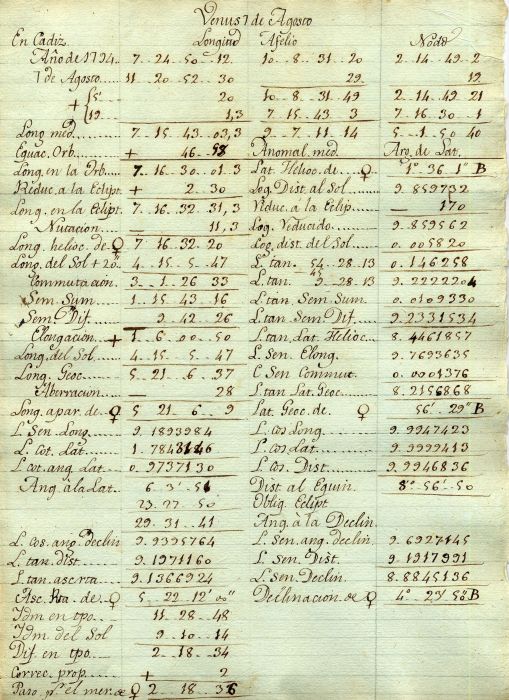 Venus 1 de Agosto
En Cadiz. Longitud Afelio Nodo
Año de 1794. 7 - 24 - 50 - 12 10 - 8 - 31 - 20 2 - 14 - 49 - 2
1 de Agosto 11 - 20 - 52 - 30 29 19
+ 5' 20 10 - 8 - 31 - 49 2 - 14 - 49 - 21
19 1,3 7 - 15 - 43 - 3 7 - 16 - 30 - 1
Long med. 7 - 15 - 43 - 03,3 9 - 7 - 11 - 14 5 - 1 - 50 - 40
Equac. Orb. + 46 - 58 Anomal. med. Arg. de Lat.
Long. en la Orb. 7 - 16 - 30 - 01,3 Lat. Helioc. de ♀ 1° 36' 1" B
Reduc. a la Eclipt. + 2 - 30 Log. Dist. al Sol 9.859732
Long. en la Eclipt. 7 - 16 - 32 - 31,3 Reduc. a la Eclip. — 170
Nutacion — 11,3 Log. Reducido 9.859562
Long. helioc. de ♀ 7 - 16 - 32 - 20 Log. dist. del Sol 0.005820
Long. del Sol + 20" 4 - 15 - 5 - 47 L. tan. 54 - 28 - 13 0.146258
Commutacion 3 - 1 - 26 - 33 L. tan. 9 - 28 - 13 9.2222204
Sem. Sum. 1 - 15 - 43 - 16 L. tan Sem Sum 0.0109330
Sem. Dif. 9 - 42 - 26 L. tan Sem Dif. 9.2331534
Elongacion + 1 - 6 - 00 - 50 L. tan. Lat. Helioc. 8.4461857
Long. del Sol 4 - 15 - 5 - 47 L. Sen. Elong. 9.7693635
Long. Geoc. 5 - 21 - 6 - 37 C Sen Commut. 0.0001376
Aberracion — 28 L. tan Lat. Geoc. 8.2156868
Long. apar. de ♀ 5 - 21 - 6 - 9 Lat. Geoc. de ♀ 56' - 29" B
L. Sen. Long. 9.1893984 L. cos Long. 9.9947423
L. Cot. Lat. 1.7843146 L. cos. Lat. 9.9999413
L. cot. ang. Lat. 0.9737130 L. cos. Dist. 9.9946836
Ang. à la Lat. 6 - 3' - 51 Dist. al Equin. 8° - 56' - 50
23 - 27 - 50 Obliq. Eclipt
29 - 31 - 41 Ang. à la Declin.
L. cos. ang. declin 9.9395764 L. Sen. ang. declin 9.6927145
L. tan. dist 9.1971160 L. Sen. Dist. 9.1917991
L. tan. asc. rta 9.1366924 L. Sen. Declin. 8.8845136
Asc. Rta. de ♀ 5 - 22 - 12' 00" Declinacion de ♀ 4° - 23' 50" B
Idm en tpo. 11 - 28 - 48
Idm del Sol 9 - 10 - 14
Dif. en tpo. 2 - 18 - 34
Correc. prop. + 2
Paso pr. el mer. de ♀ 2 - 18 - 36